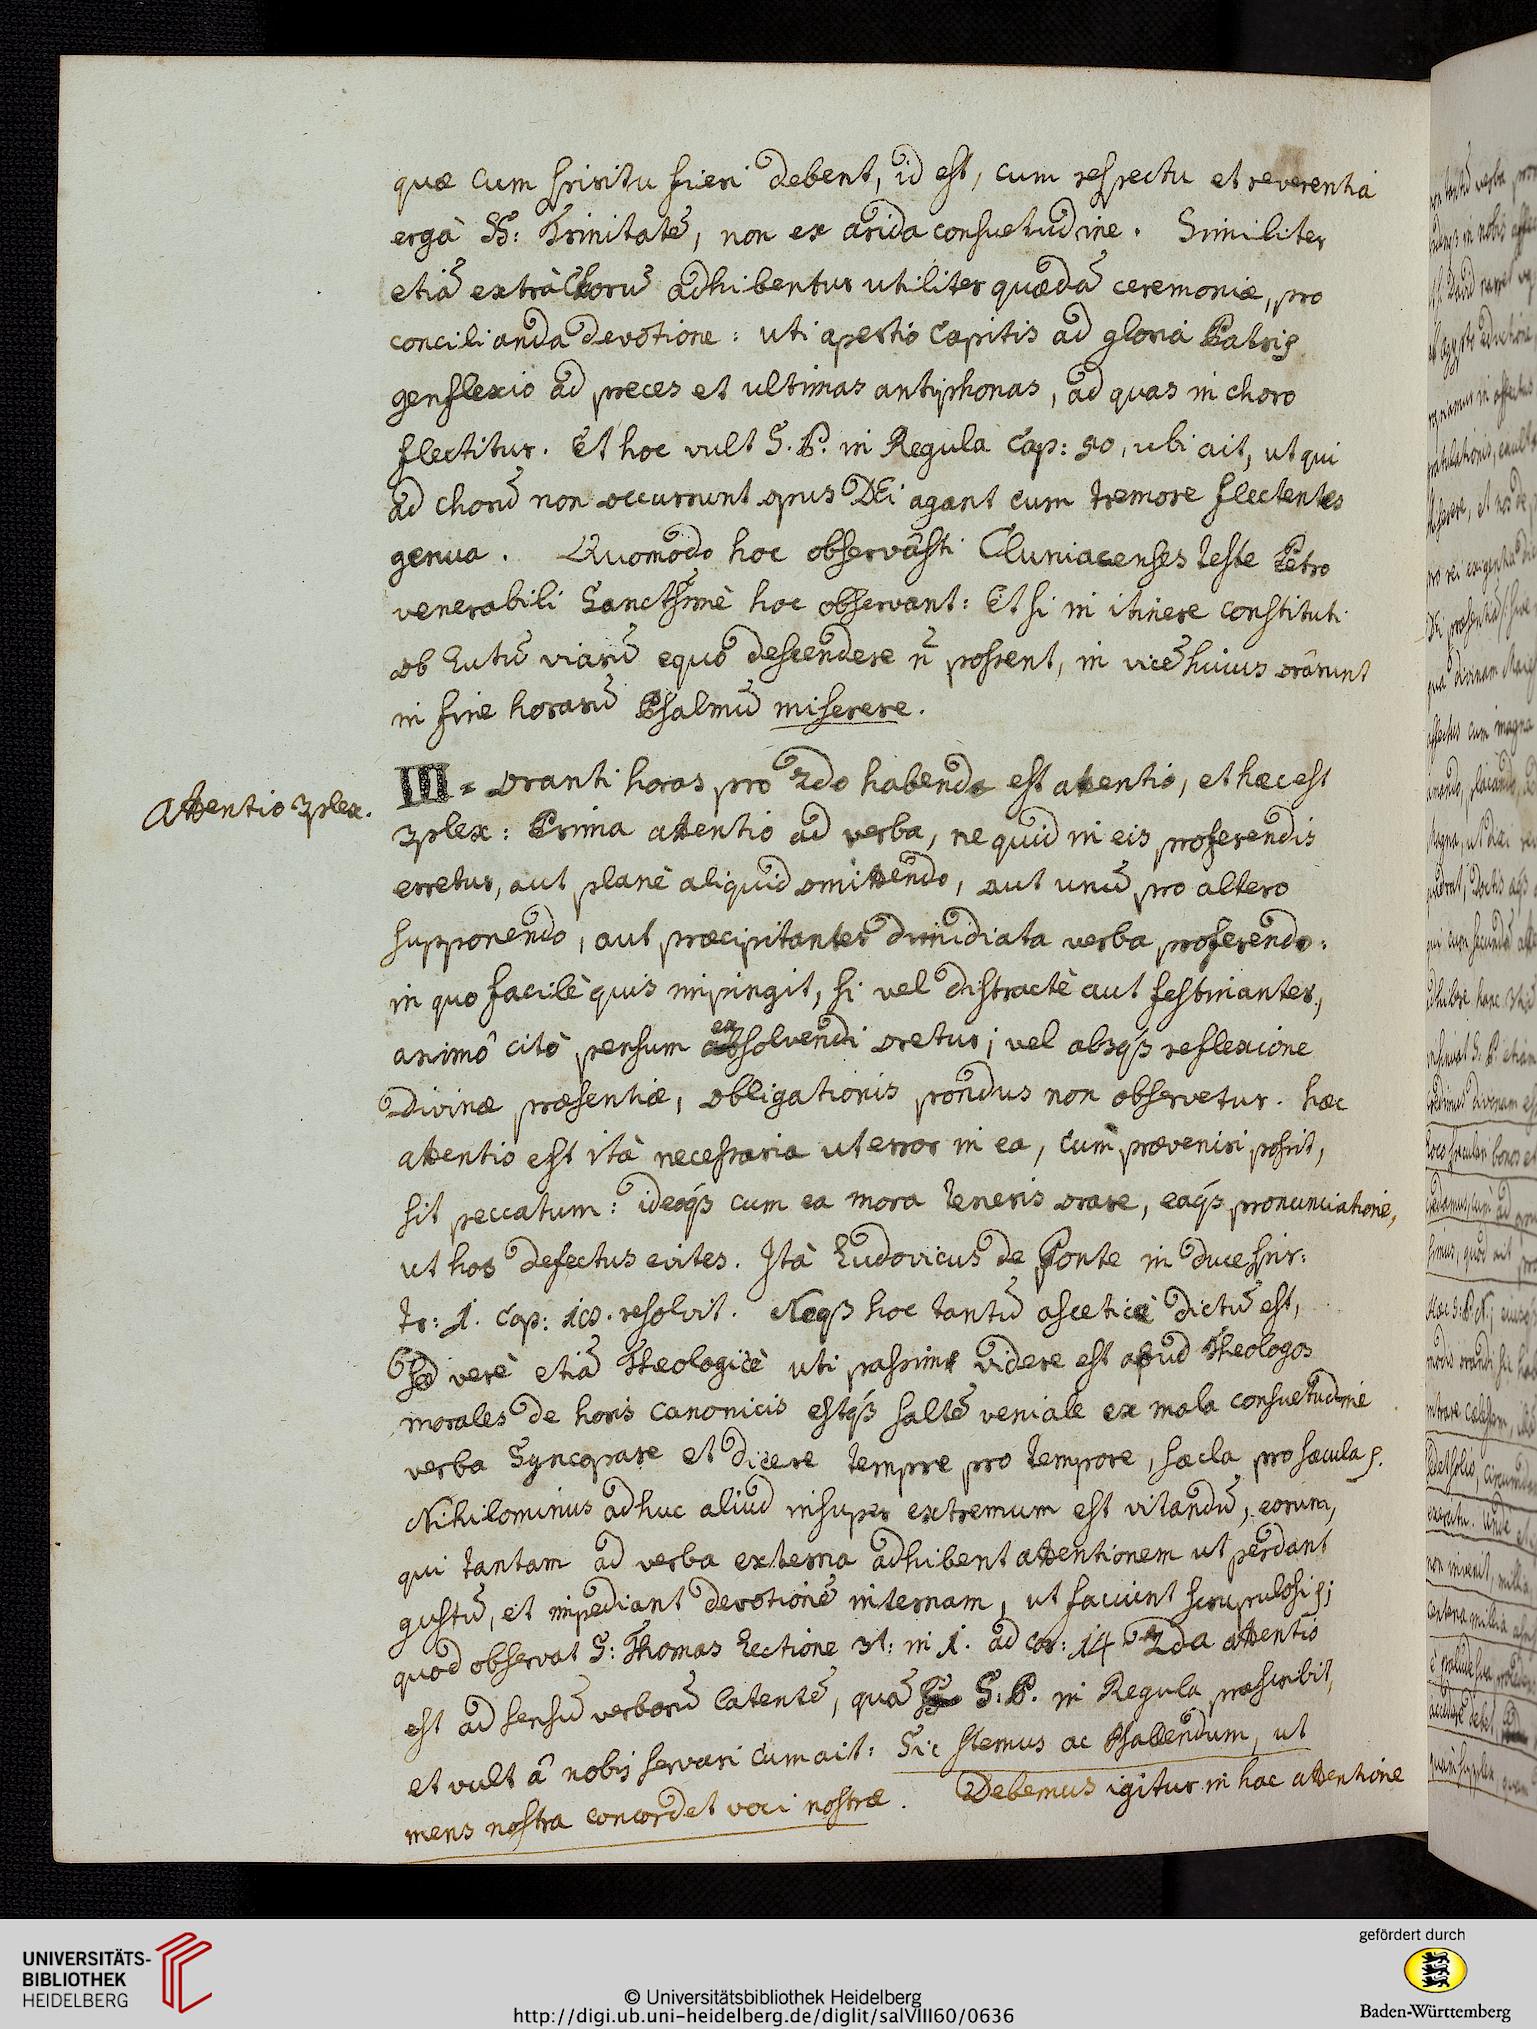 quæ cum spiritu fieri debent, id est, cum respectu et reverentiâ
ergà SS: Trinitatẽ, non ex arida consuetudine. Similiter
etiã extrà Chorũ adhibentur utiliter quædã ceremoniæ, pro
concilianda devotione: uti apertio Capitis ad gloriã Patris
genflexio ad preces et ultimas antiphonas, ad quas in choro
flectitur. Et hoc vult S. P. in Regula Cap: 50, ubi ait, ut qui
ad chorũ non occurrunt opus DEi agant cum tremore flectentes
genua. Quomodo hoc observâsti Cluniacenses teste Petro
venerabili Sanctissimè hoc observant: Et si in itinere constituti
ob lutũ viarũ equo descendere ñ possent, in vicẽ huius orârunt
in fine horarũ Psalmũ miserere.
Attentio 3plex.
III = Oranti horas pro 2do habenda est attentio, et hæc est
3plex: Prima attentio ad verba, ne quid in eis proferendis
erretur, aut planè aliquid omittendo, aut unũ pro altero
supponendo, aut præcipitanter dimidiata verba proferendo:
in quo facilè quis impingit, si vel distractè aut festinanter,
animô citò pensum exsolvendi oretur; vel absqȝ reflexione
Divinæ præsentiæ, obligationis pondus non observetur. hæc
attentio est ità necessaria ut error in ea, cum præveniri possit,
sit peccatum: ideoqȝ cum ea mora teneris orare, eaqȝ pronunciatione,
ut hos defectus evites. Ità Ludovicus de Ponte in duce spir:
tr: 1. cap: 10. resolvit. Neqȝ hoc tantũ asceticè dictũ est,
Sed verè etiã Theologicè uti passim videre est apud Theologos
morales de horis canonicis estqȝ saltẽ veniale ex mala consuetudine
verba Syncopare et dicere tempre pro tempore, sæcla pro sæcula ꝭ.
Nihilominus adhuc aliud insuper extremum est vitandũ, eorum,
qui tantam ad verba externa adhibent attentionem ut perdant
gustũ, et impediant devotionẽ internam, ut faciunt scrupulosi ꝭ;
quod observat S: Thomas Lectione 3t: in 1. ad Cor: 14 2da attentio
est ad sensũ verborũ latentẽ, quã S: P. in Regula præscribit,
et vult â nobis servari cum ait: Sic stemus ac Psallendum, ut
mens nostra concordet voci nostræ. Debemus igitur in hac attentione
UNIVERSITÄTS-
BIBLIOTHEK
HEIDELBERG
© Universitätsbibliothek Heidelberg
http://digi.ub.uni-heidelberg.de/diglit/salVIII60/0636
gefördert durch
Baden-Württemberg